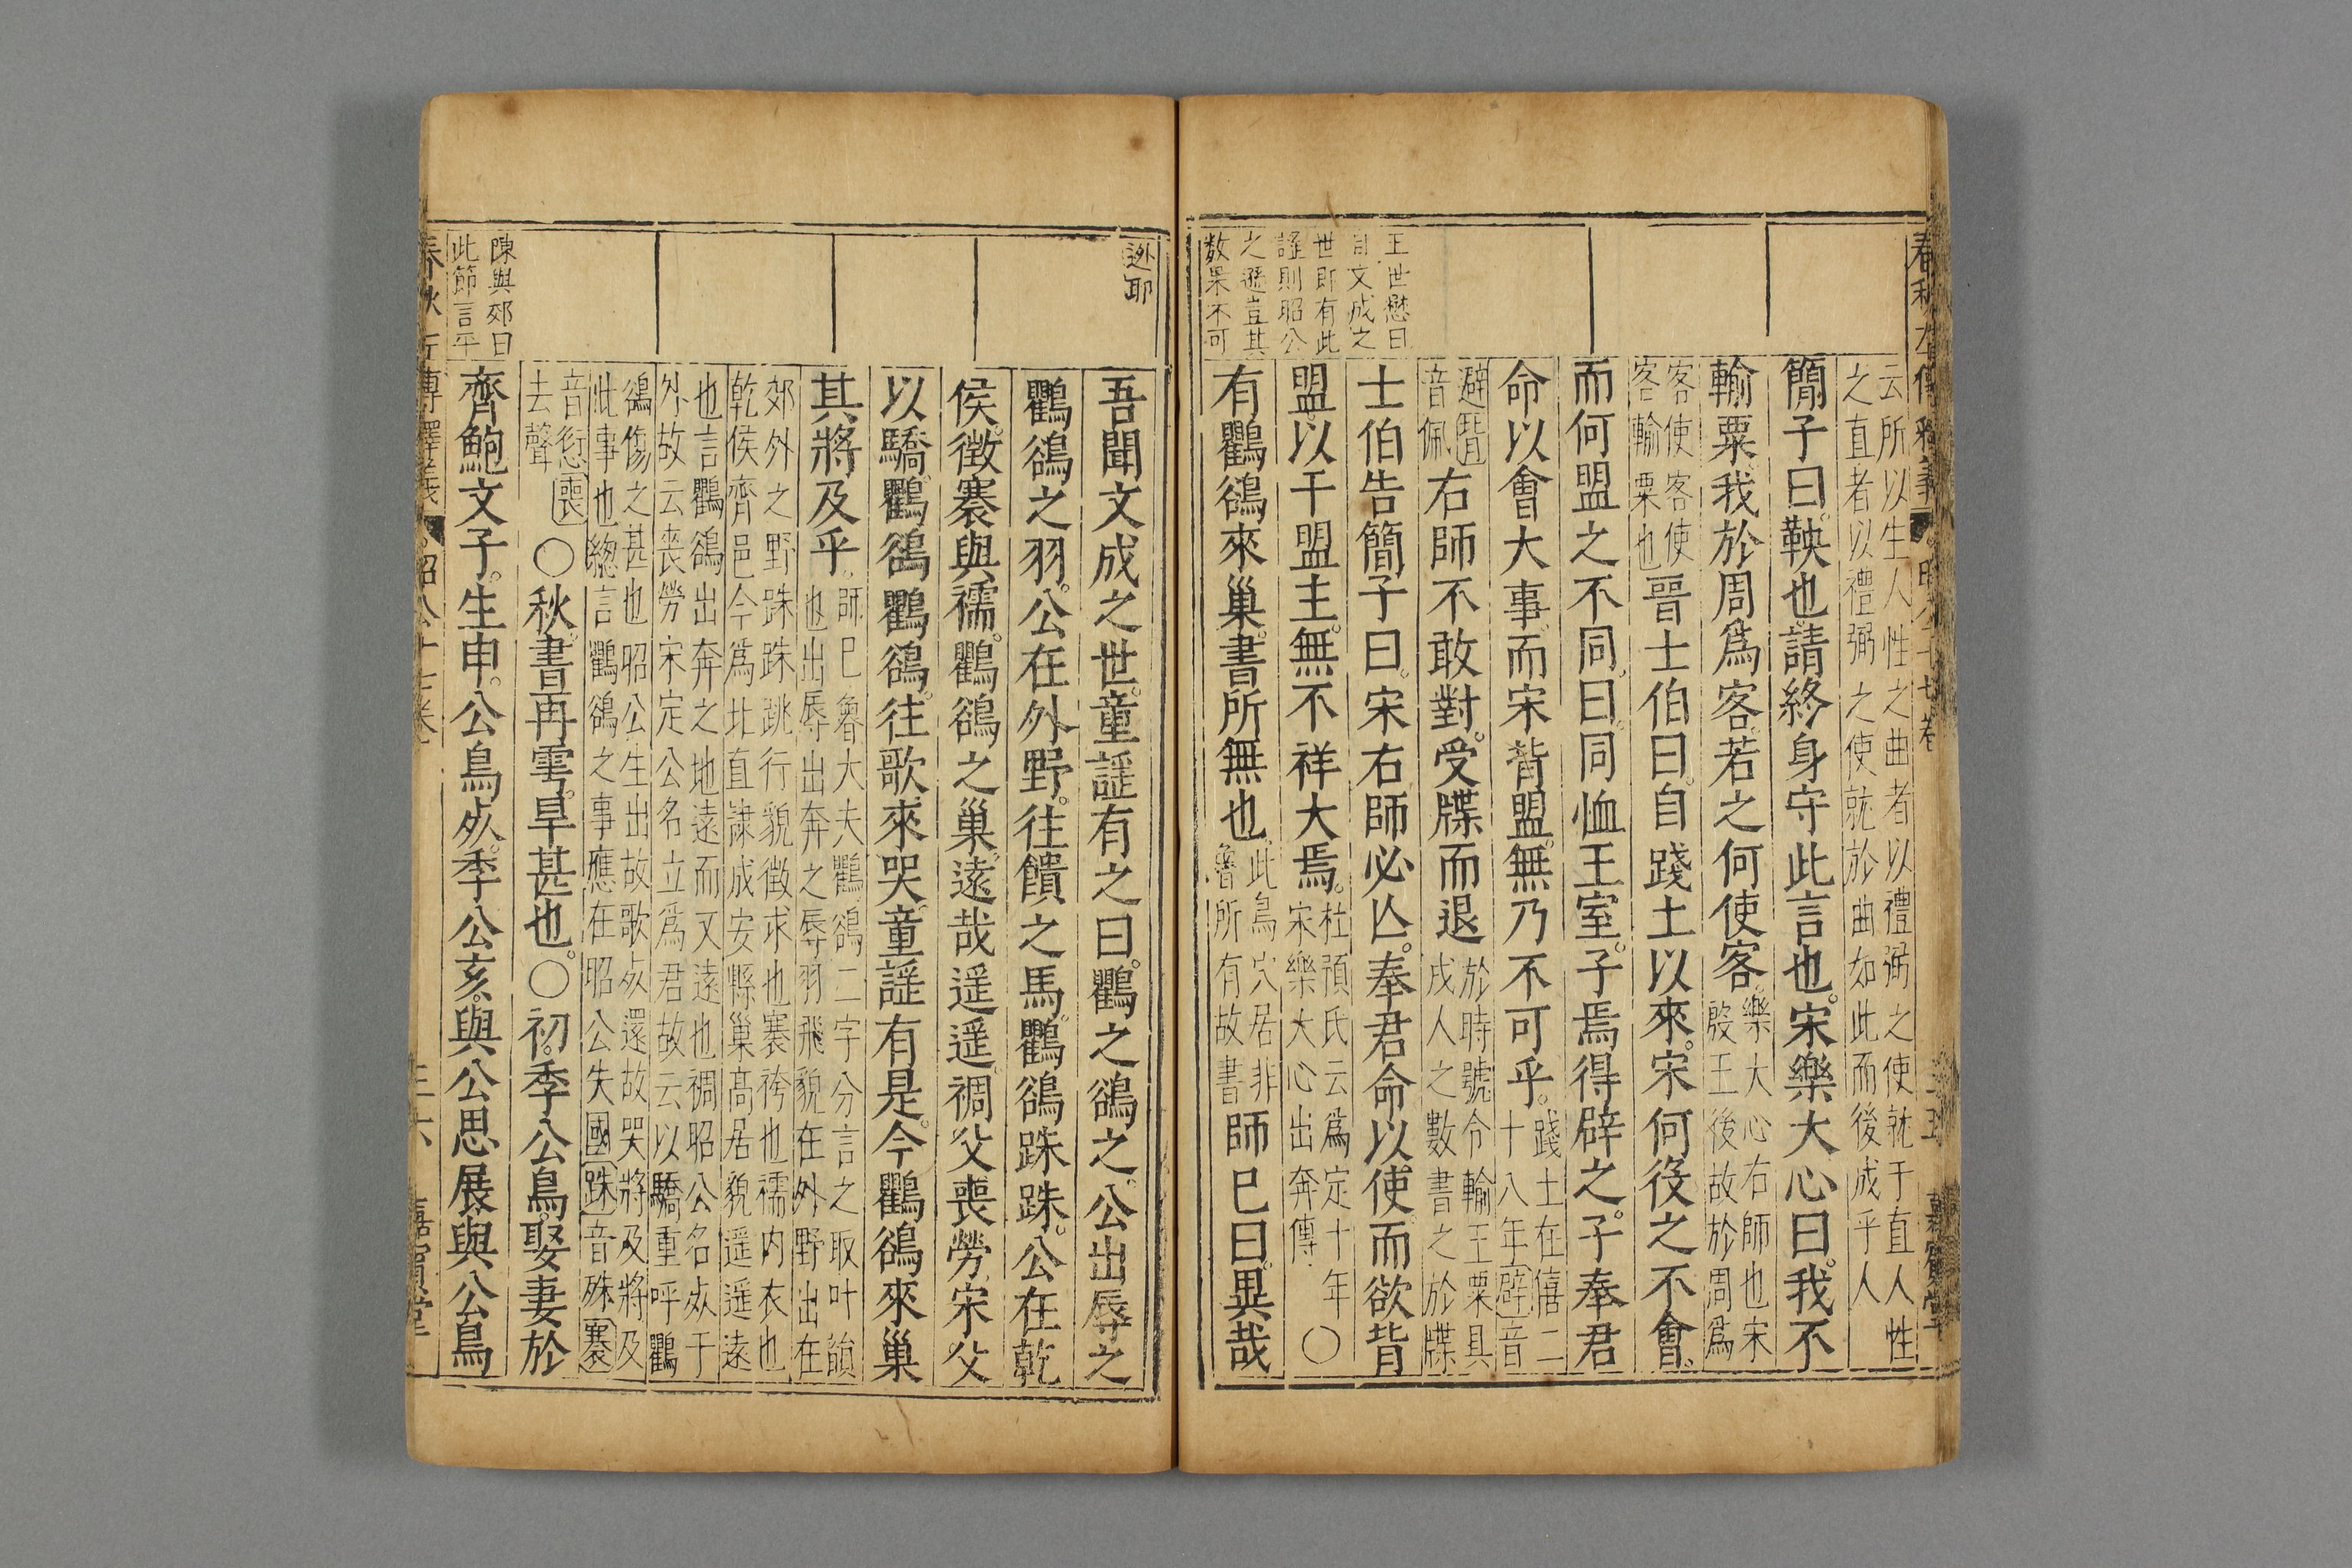 云所以生人性之曲者以禮弼之使就于直人性
之直者以禮弼之使就於曲如此而後成乎人
簡子曰鞅也請終身守此言也宋樂大心曰我不
輸粟我於周爲客若之何使客
樂大心右師也宋
殷王後故於周爲
客使客使
客輸粟也
晉士伯曰自踐土以來宋何役之不會
而何盟之不同曰同恤王室子焉得辟之子奉君
命以會大事而宋背盟無乃不可乎
踐土在僖二
十八年辟音
避
音佩
右師不敢對受牒而退
於時號令輸王粟具
戍人之數書之於牒
士伯告簡子曰宋右師必亾奉君命以使而欲背
盟以干盟主無不祥大焉
杜預氏云爲定十年
宋樂大心出奔傳
〇
有鸜鵒來巢書所無也
此鳥穴居非
魯所有故書
師已曰異哉
王世懋曰
自文成之
世即有此
謡則昭公
之遜豈其
数果不可
逊耶
吾聞文成之世童謡有之曰鸜之鵒之公出辱之
鸜鵒之羽公在外野往饋之馬鸜鵒跦跦公在乾
侯徵褰與襦鸜鵒之巢遠哉遥遥裯父喪勞宋父
以驕鸜鵒鸜鵒往歌來哭童謡有是今鸜鵒來巢
其將及乎
師巳魯大夫鸜鵒二字分言之取叶韻
也出辱出奔之辱羽飛貌在外野出在
郊外之野跦跦跳行貌徵求也褰袴也襦内衣也
乾侯齊邑今爲北直隷成安縣巢髙居貌遥遥遠
也言鸜鵒出奔之地遠而又遠也裯昭公名死于
外故云喪勞宋定公名立爲君故云以驕重呼鸜
鵒傷之甚也昭公生出故歌死還故哭將及將及
此事也緫言鸜鵒之事應在昭公失國跦音殊褰
音愆喪
去聲
〇秋書再雩旱甚也〇初季公鳥娶妻於
齊鮑文子生申公鳥死季公亥與公思展與公鳥
陳與郊曰
此節言平